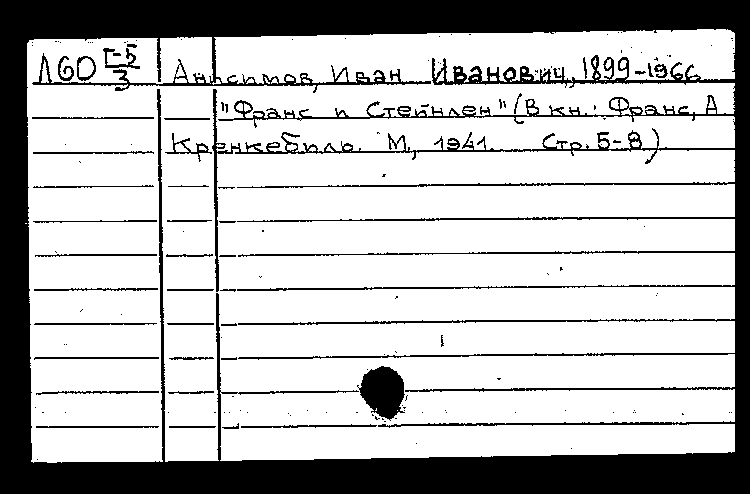 Л60 Г-5/3 Анисимов, Иван Иванович, 1899-1966
"Франс и Стейнлен" (В кн.: Франс, А.
Кренкебиль. М., 1941. Стр. 5-8)